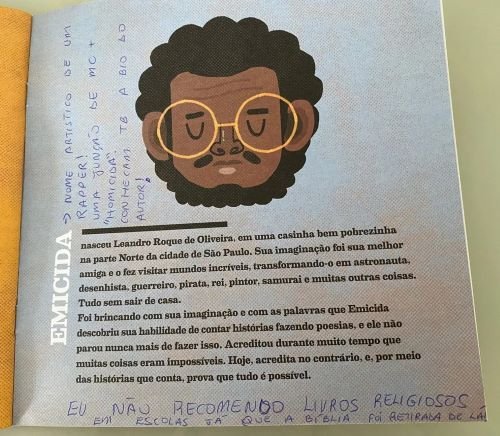 → NOME ARTÍSTICO DE UM
RAPPER!
UMA JUNÇÃO DE MC +
"HOMICIDA".
CONHEÇAM TB A BIO DO
AUTOR!
EMICIDA
nasceu Leandro Roque de Oliveira, em uma casinha bem pobrezinha
na parte Norte da cidade de São Paulo. Sua imaginação foi sua melhor
amiga e o fez visitar mundos incríveis, transformando-o em astronauta,
desenhista, guerreiro, pirata, rei, pintor, samurai e muitas outras coisas.
Tudo sem sair de casa.
Foi brincando com sua imaginação e com as palavras que Emicida
descobriu sua habilidade de contar histórias fazendo poesias, e ele não
parou nunca mais de fazer isso. Acreditou durante muito tempo que
muitas coisas eram impossíveis. Hoje, acredita no contrário, e, por meio
das histórias que conta, prova que tudo é possível.
EU NÃO RECOMENDO LIVROS RELIGIOSOS
EM ESCOLAS JÁ QUE A BÍBLIA FOI RETIRADA DE LÁ